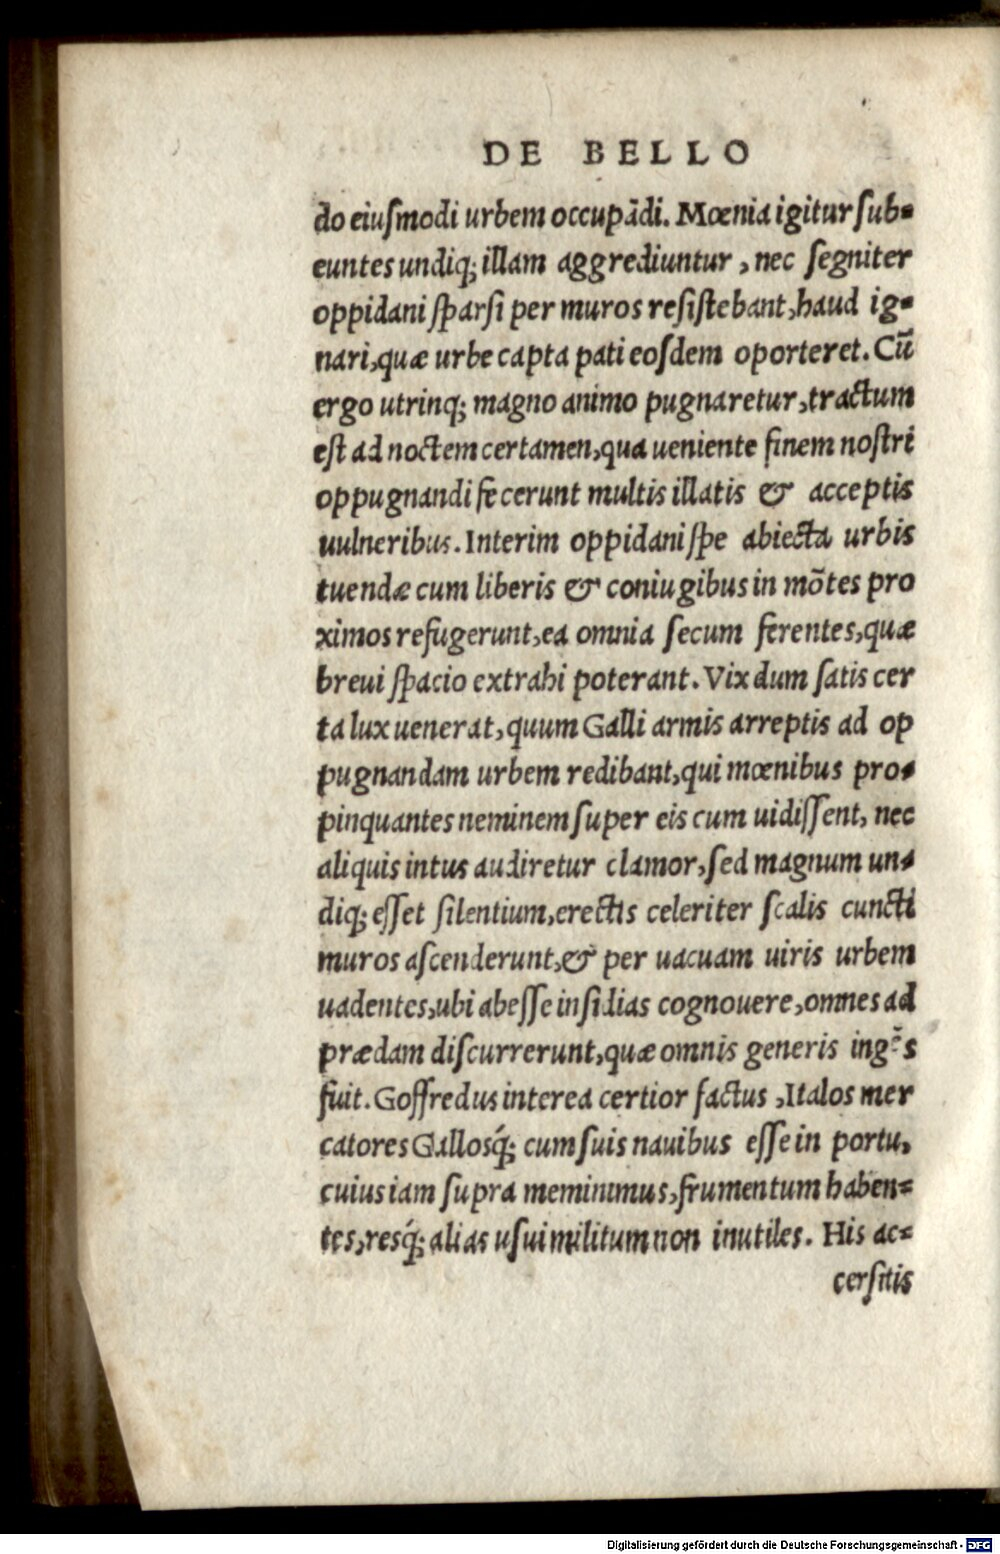 DE BELLO
do eiuſmodi urbem occupādi. Mœnia igitur ſub-
euntes undiq; illam aggrediuntur, nec ſegniter
oppidani ſparſi per muros reſiſtebant, haud ig-
nari, quæ urbe capta pati eoſdem oporteret. Cū
ergo utrinq; magno animo pugnaretur, tractum
eſt ad noctem certamen, qua ueniente finem noſtri
oppugnandi fecerunt multis illatis & acceptis
uulneribus. Interim oppidani ſpe abiecta urbis
tuendæ cum liberis & coniugibus in mōtes pro
ximos refugerunt, ea omnia ſecum ferentes, quæ
breui ſpacio extrahi poterant. Vix dum ſatis cer
ta lux uenerat, quum Galli armis arreptis ad op
pugnandam urbem redibant, qui mœnibus pro-
pinquantes neminem ſuper eis cum uidiſſent, nec
aliquis intus audiretur clamor, ſed magnum un-
diq; eſſet ſilentium, erectis celeriter ſcalis cuncti
muros aſcenderunt, & per uacuam uiris urbem
uadentes, ubi abeſſe inſidias cognouere, omnes ad
prædam diſcurrerunt, quæ omnis generis ingēs
fuit. Goffredus interea certior factus, Italos mer
catores Gallosq́; cum ſuis nauibus eſſe in portu,
cuius iam ſupra meminimus, frumentum haben-
tes, resq́; alias uſui militum non inutiles. His ac-
cerſitis
Digitalisierung gefördert durch die Deutsche Forschungsgemeinschaft - DFG